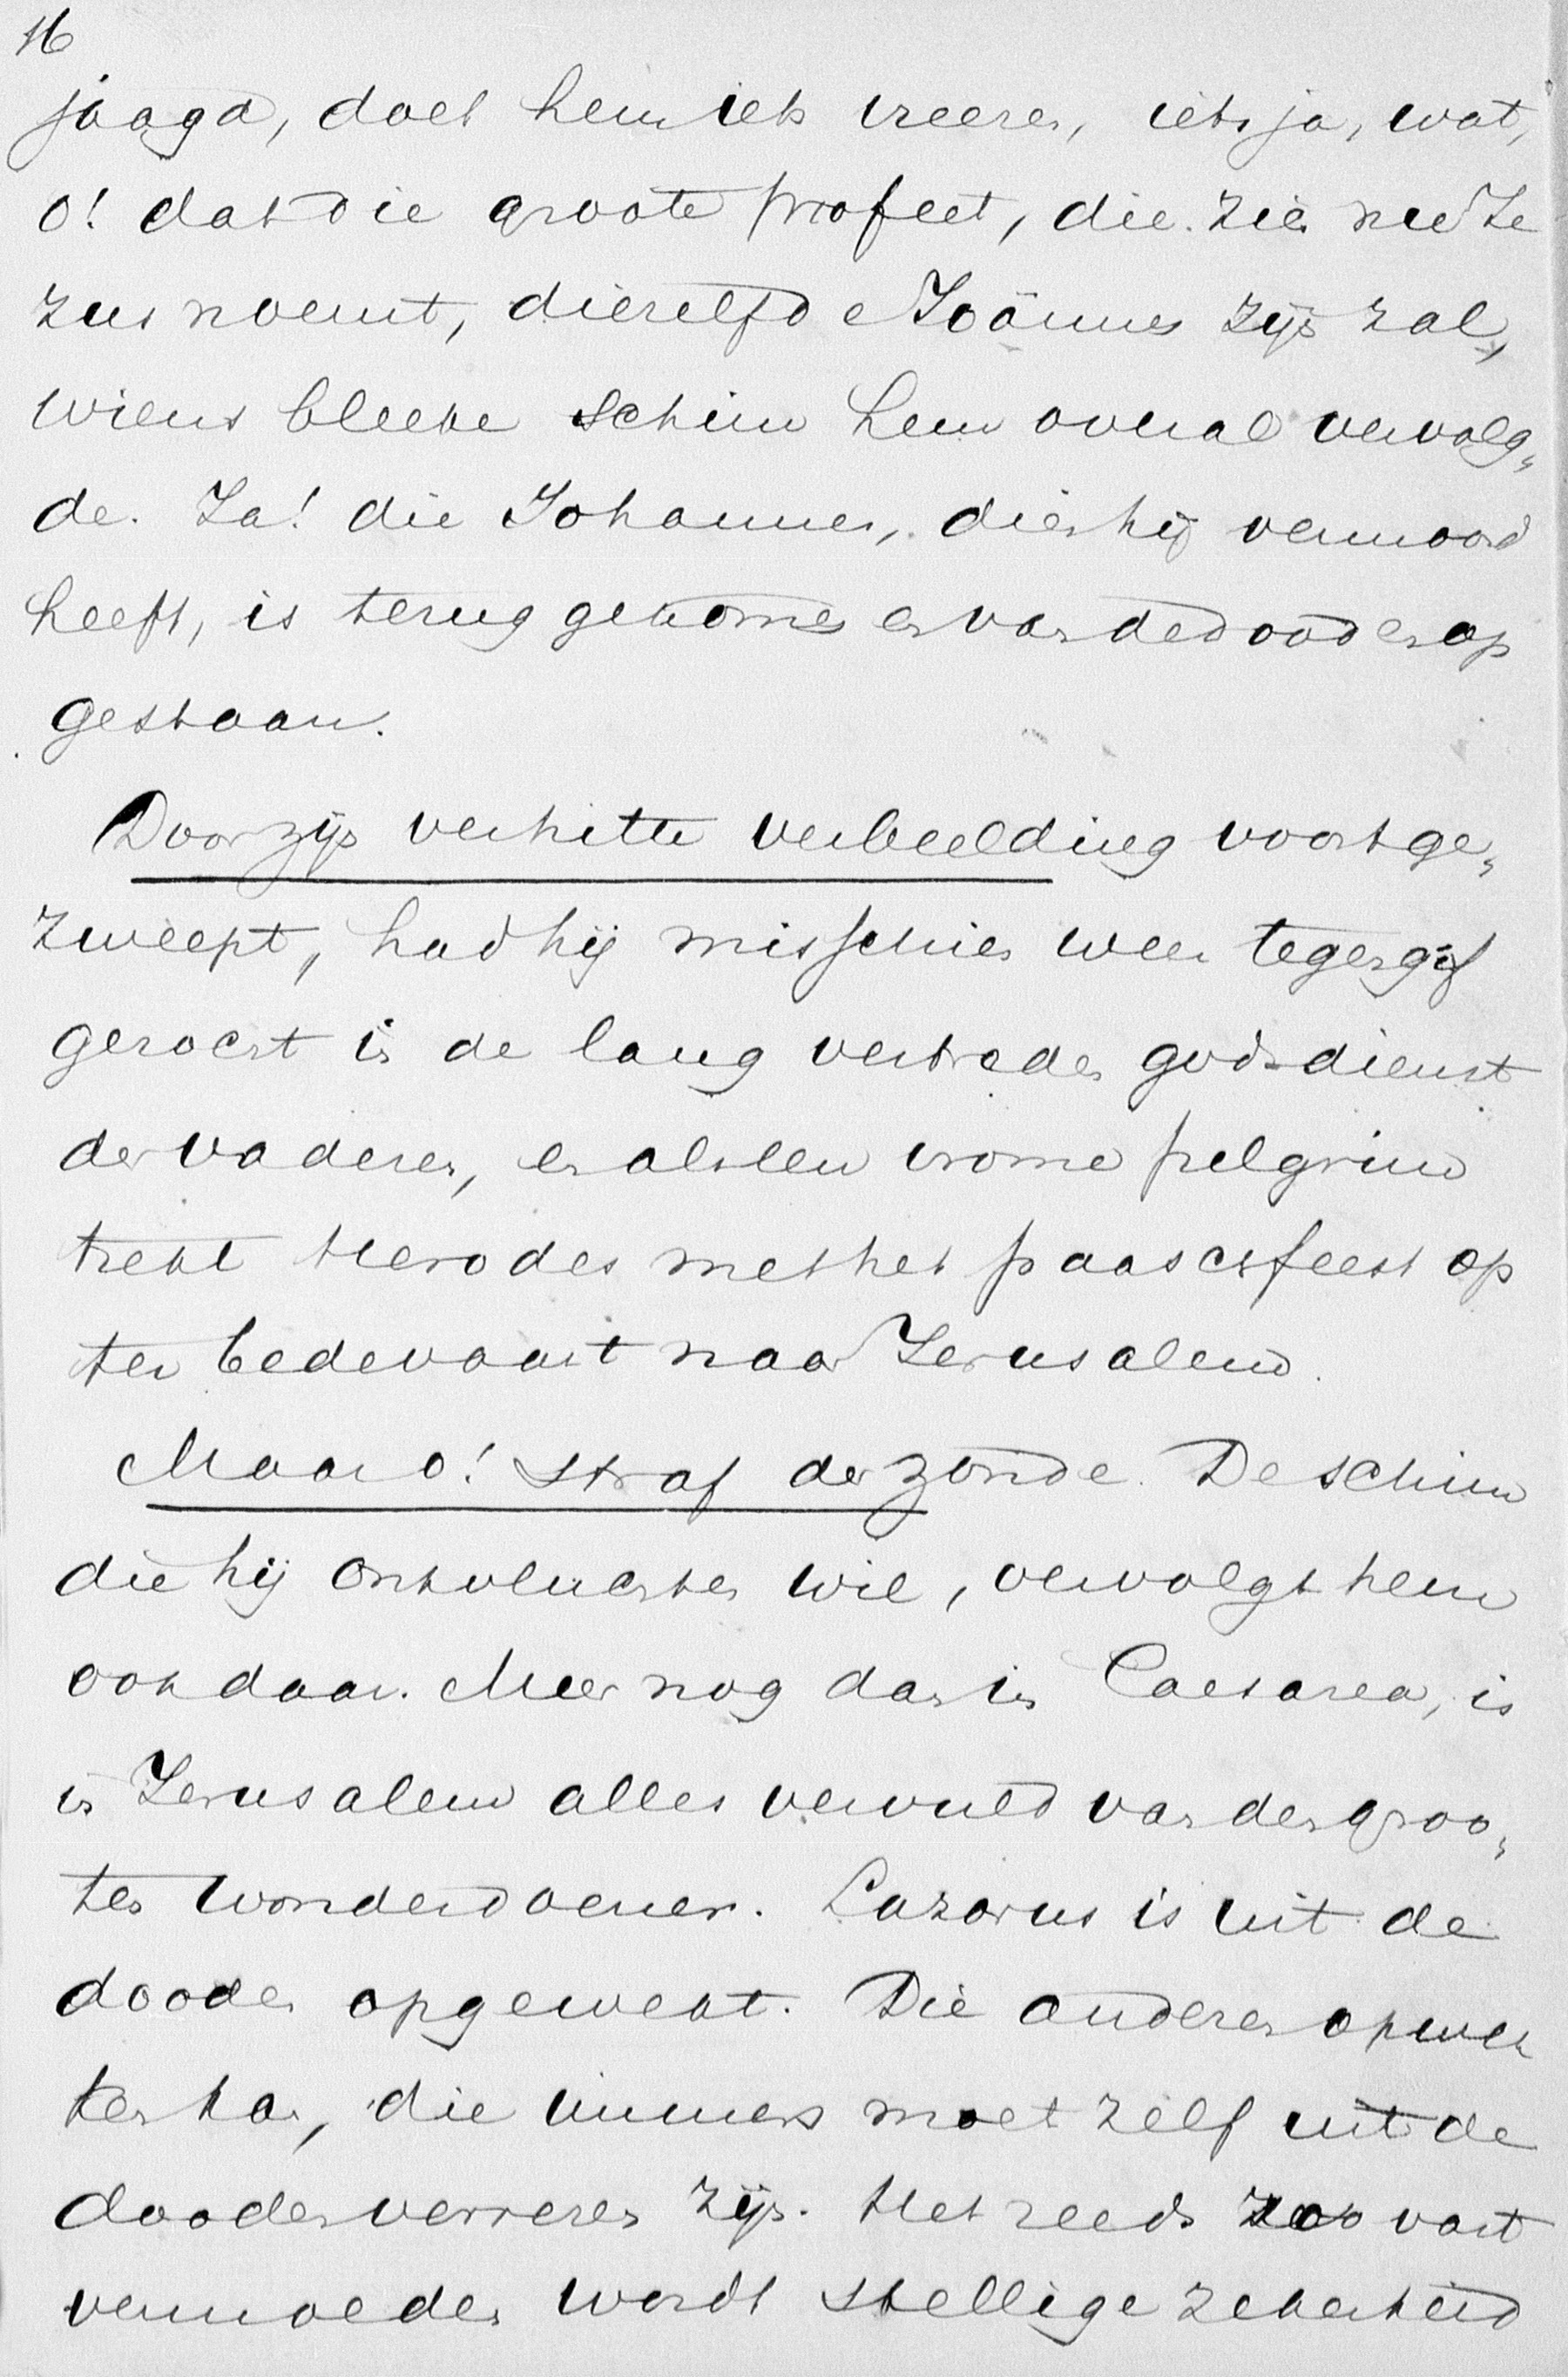 16
jaagd, doet hem iets vreezen, iets ja, wat,
o! dat die groote profeet, die zich nu Je
zus noemt, diezelfde Joännes zijn zal,
wiens bleeke schim hem overal vervolg„
de. Ja! die Johannes, dien hij vermoord
heeft, is terug gekomen en van de dooden op
gestaan.
Door zijn verhitte verbeelding voortge„
zweept, had hij misschien weer tegengif
gezocht in de lang vertreden godsdienst
der vaderen, en als een vrome pelgrim
trekt Herodes met het paaschfeest op
ter bedevaart naar Jerusalem.
Maar o! straf der zonde. De schim
die hij ontvluchten wil, vervolgt hem
ook daar. Meer nog dan in Caesarea, is
in Jerusalem alles vervuld van den groo„
ten wonderdoener. Lazarus is uit de
dooden opgewekt. Die anderen opwek
ken kan, die immers moet zelf uit de
dooden verrezen zijn. Het reeds zoo vast
vermoeden wordt stellige zekerheid